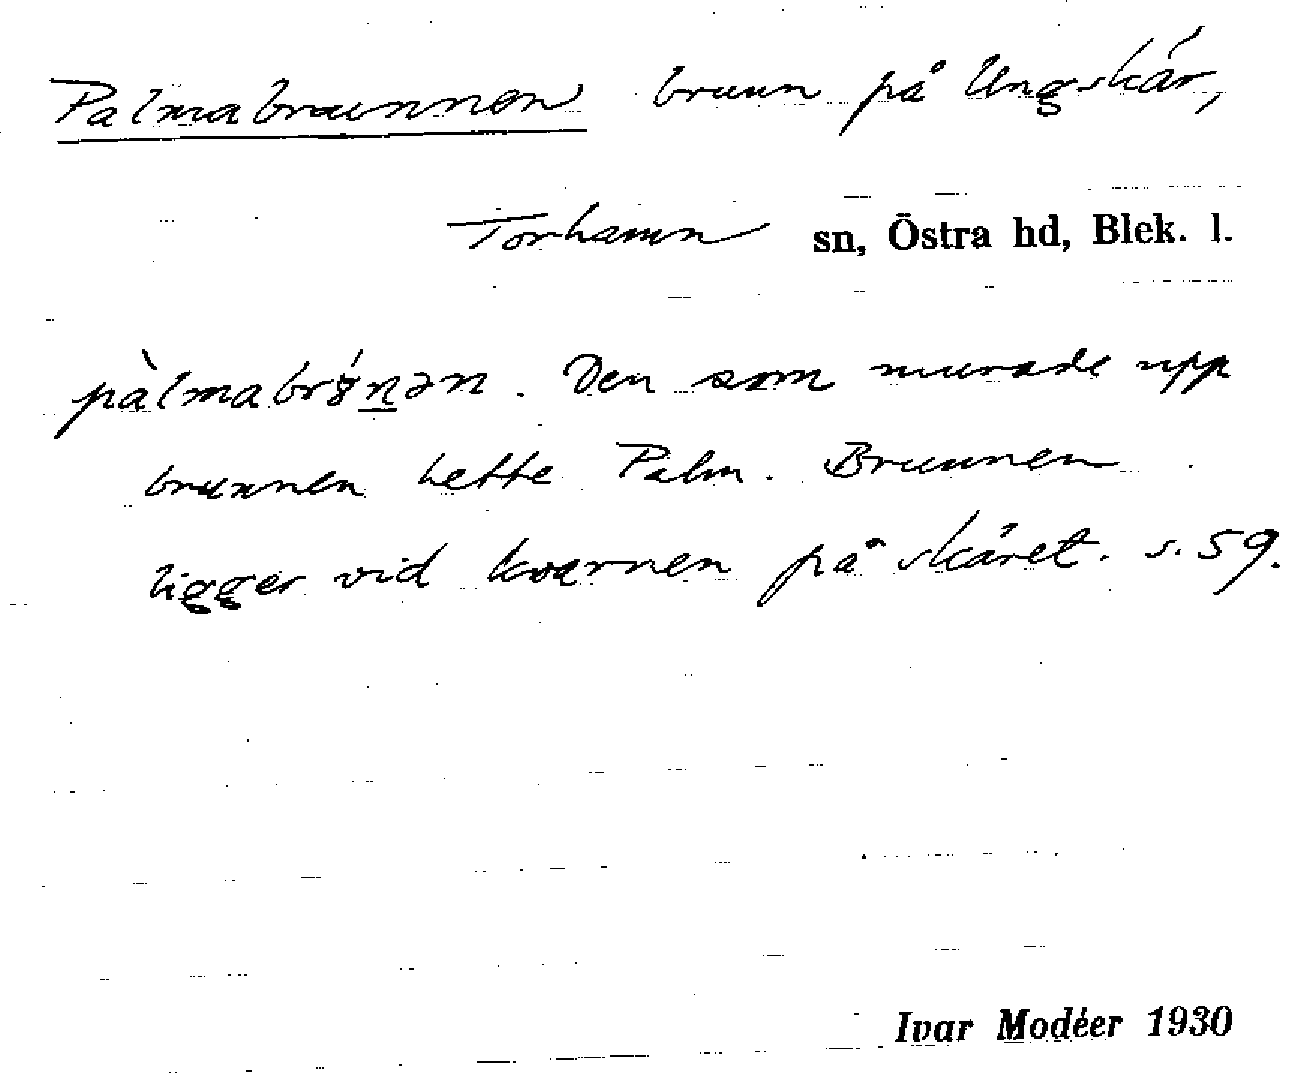 Palmabrunnen brunn på Ungskär,
Torhamn sn, Östra hd, Blek. l.
pàlmabrɤ́n̲ən. Den som murade upp
brunnen hette Palm. Brunnen
ligger vid kvarnen på skäret. s. 59.
Ivar Modéer 1930